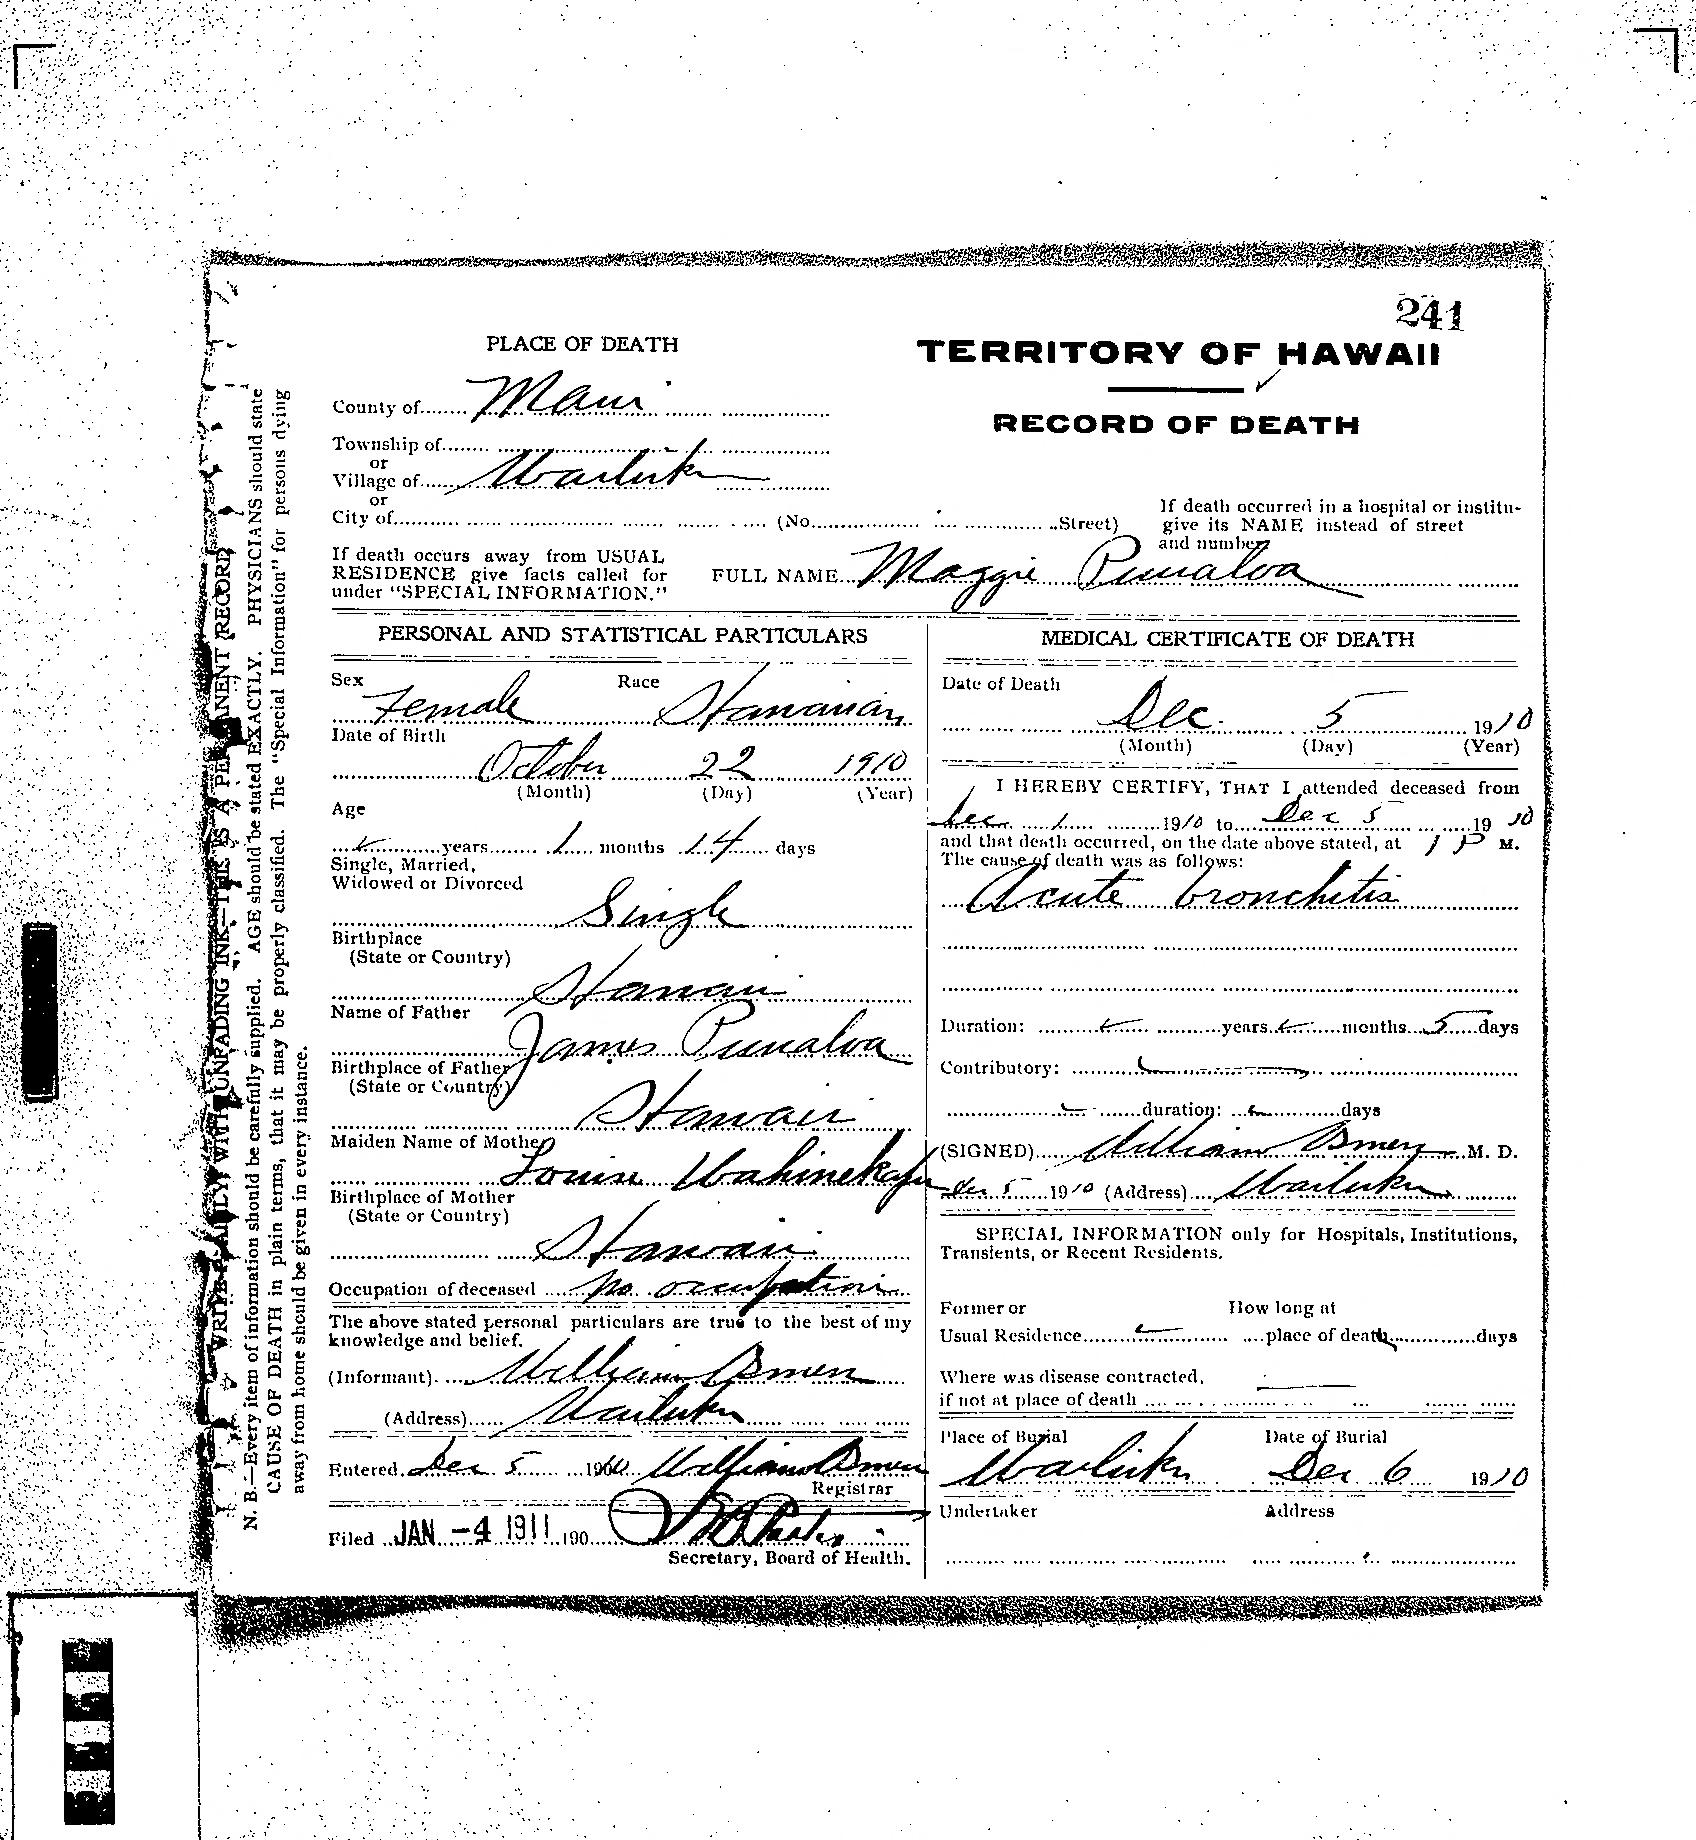 241
PLACE OF DEATH
TERRITORY OF HAWAII
RECORD OF DEATH
County of Maui
Township of
or
Village of Wailuku
or
City of (No. Street)
If death occurred in a hospital or institu-
give its NAME instead of street
and number
If death occurs away from USUAL
RESIDENCE give facts called for
under "SPECIAL INFORMATION."
FULL NAME Maggie Punaloa
PERSONAL AND STATISTICAL PARTICULARS
Sex Female Race Hawaiian
Date of Birth
October 22 1910
(Month) (Day) (Year)
Age
years 1 months 14 days
Single, Married,
Widowed or Divorced
Single
Birthplace
(State or Country)
Hawaii
Name of Father
James Punaloa
Birthplace of Father
(State or Country)
Hawaii
Maiden Name of Mother
Louise
Birthplace of Mother
(State or Country)
Hawaii
Occupation of deceased no occupation
The above stated personal particulars are true to the best of my
knowledge and belief.
(Informant) William Osmers
(Address) Wailuku
Entered Dec 5 1910 William Osmers
Registrar
Filed JAN -4 1911 190
Secretary, Board of Health.
MEDICAL CERTIFICATE OF DEATH
Date of Death
Dec. 5 1910
(Month) (Day) (Year)
I HEREBY CERTIFY, THAT I attended deceased from
Dec. 1 1910 to Dec 5 1910
and that death occurred, on the date above stated, at 1 P M.
The cause of death was as follows:
Acute bronchitis
Duration: years months 5 days
Contributory:
duration: days
(SIGNED) William Osmers M. D.
Dec 5 1910 (Address) Wailuku
SPECIAL INFORMATION only for Hospitals, Institutions,
Transients, or Recent Residents.
Former or How long at
Usual Residence place of death days
Where was disease contracted,
if not at place of death
Place of Burial Date of Burial
Wailuku Dec 6 1910
Undertaker Address
WRITE PLAINLY WITH UNFADING INK—THIS IS A PERMANENT RECORD
N. B.—Every item of information should be carefully supplied. AGE should be stated EXACTLY. PHYSICIANS should state
CAUSE OF DEATH in plain terms, that it may be properly classified. The "Special Information" for persons dying
away from home should be given in every instance.